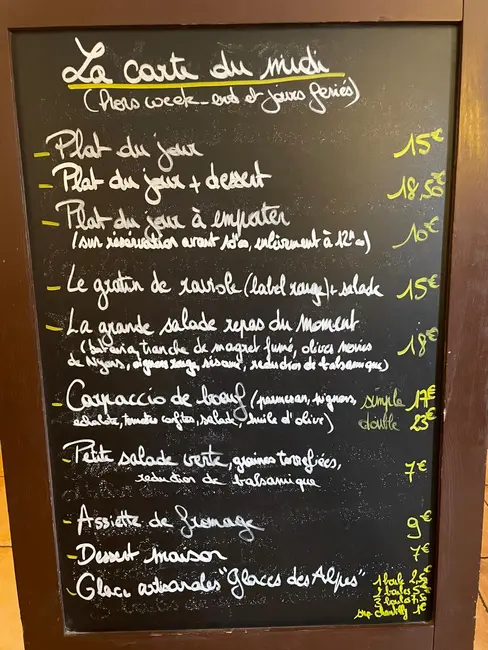 La carte du midi
(hors week-end et jours feriés)
- Plat du jour 15€
- Plat du jour + dessert 18,50€
- Plat du jour à emporter 10€
(sur reservation avant 10h00, enlèvement à 12h00)
- Le gratin de raviole (label rouge) + salade 15€
- La grande salade repas du moment 18€
(batavia, tranche de magret fumé, olives noires
de Nyons, oignons rouge, sésame, reduction de balsamique)
- Carpaccio de boeuf (parmesan, pignons, simple 17€
échalote, tomates confites, salade, huile d'olive) double 23€
- Petite salade verte, graines torrefiées, 7€
reduction de balsamique
- Assiette de fromage 9€
- Dessert maison 7€
- Glace artisanales "Glaces des Alpes" 1 boule 2,50€
2 boules 5€
3 boules 7,50
sup chantilly 1€